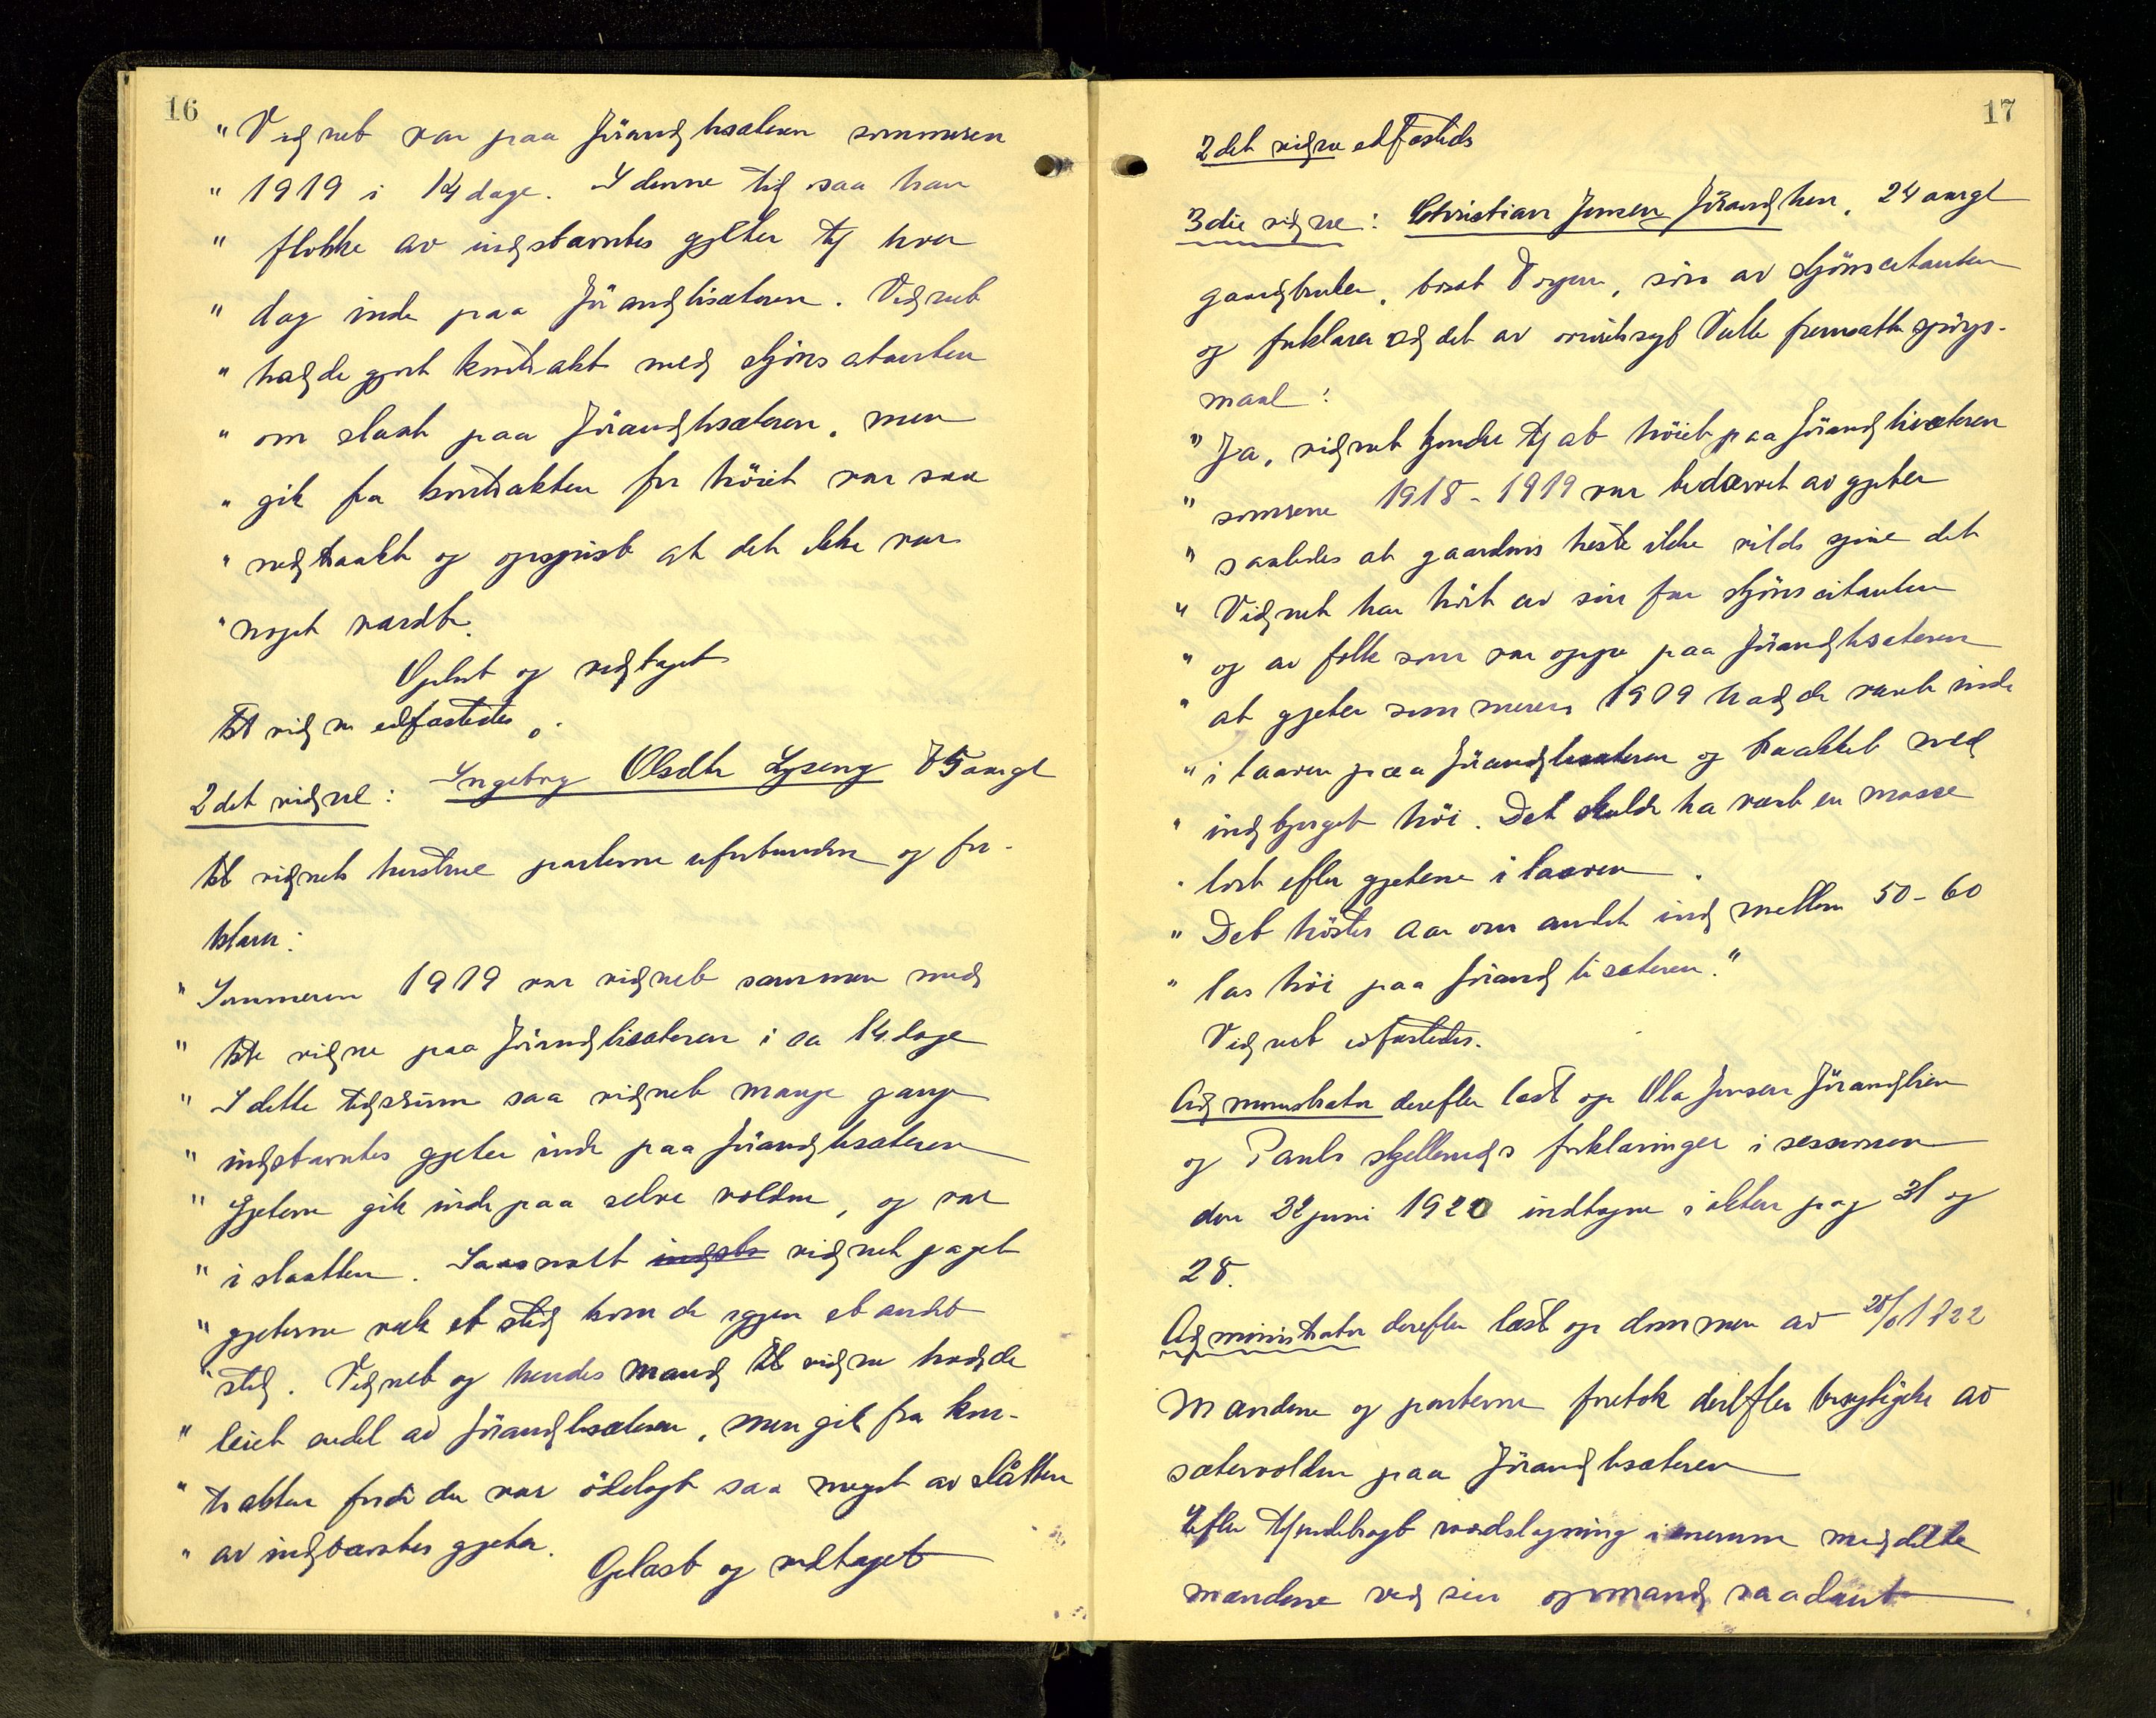 16
"Vidnet var paa Jörandlisæteren sommeren
" 1919 i 14 dage. I denne tid saa han
" flokke av indstævntes gjeter tf hver
" dag inde paa Jörandlisæteren. Vidnet
" hadde gjort kontrakt med skjönscitanten
" om slaat paa Jörandlisæteren, men
" gik fra kontrakten for höiet var saa
" nedtraakt og opspist at det ikke var
" noget værdt.
Oplæst og vedtaget
1st vidne edfæstedes.
2det vidne: Ingeborg Olsdtr Lyseng 75 aargl
1st vidnets hustrue parterne uforbunden og for-
klarer:
" Sommeren 1919 var vidnet sammen med
" 1ste vidne paa Jörandlisæteren i ca 14 dage
" I dette tidsrum saa vidnet mange gange
" indstævntes gjeter inde paa Jörandlisæteren
" Gjetene gik inde paa selve volden, og var
" i slaatten. Saasnart indstv vidnet jaget
" gjeterne væk et sted kom de igjen et andet
" sted. Vidnet og hendes mand 1st vidne hadde
" leiet endel av Jörandlisæteren, men gik fra kon-
" trakten fordi der var ödelagt saa meget av slåtten
" av indstævntes gjeter.
Oplæst og vedtaget
17
2det vidne edfæstedes
3die vidne: Christian Jensen Jörandlien, 24 aargl
gaardbruker, bosat Vogen, sön av skjönscitanten
og forklarer paa det av overretssagf Vulle fremsatte spörgs-
maal:
" Ja, vidnet kjender tf at höiet paa Jörandlisæteren
" somrene 1918-1919 var bedærvet av gjeter
" saaledes at gaardens heste ikke vilde spise det
" Vidnet har hört av sin far skjönscitanten
" og av folk som var oppe paa Jörandlisæteren
" at gjeter sommeren 1919 hadde været inde
" i laaven paa Jörandlisæteren og traakket ned
" indbjerget höi. Det skulde ha været en masse
" lort efter gjetene i laaven.
" Det höstes aar om andet ind mellem 50-60
" las höi paa Jörandlisæteren."
Vidnet edfæstedes.
Administrator derefter læst op Ola Jensen Jörandlien
og Pauls Skjelleruds forklaringer i sessionen
den 22 juni 1920 indtagne i akten pag 31 og
28.
Administrator derefter læst op dommen av 1922
Mændene og parterne foretok derefter besigtigelse av
sætervolden paa Jörandlisæteren
Efter tfendebragt raadslagning i enerum meddelte
mændene ved sin opmand saadant